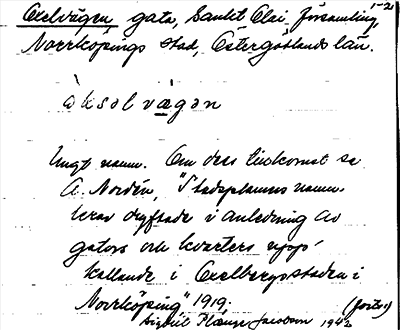 1-2)
Oxelvägen gata, Sankt Olai församling,
Norrköpings stad, Östergötlands län.
òksəl vä̱gən
Ungt namn. Om dess tillkomst se
A. Nordén, "Stadsplanens namn-
krav dryftade i anledning av
gators och kvarters upp-
kallande i Oxelbergsstaden i
Norrköping" 1919. (forts.)
Sigfrid Plænge Jacobson 1942